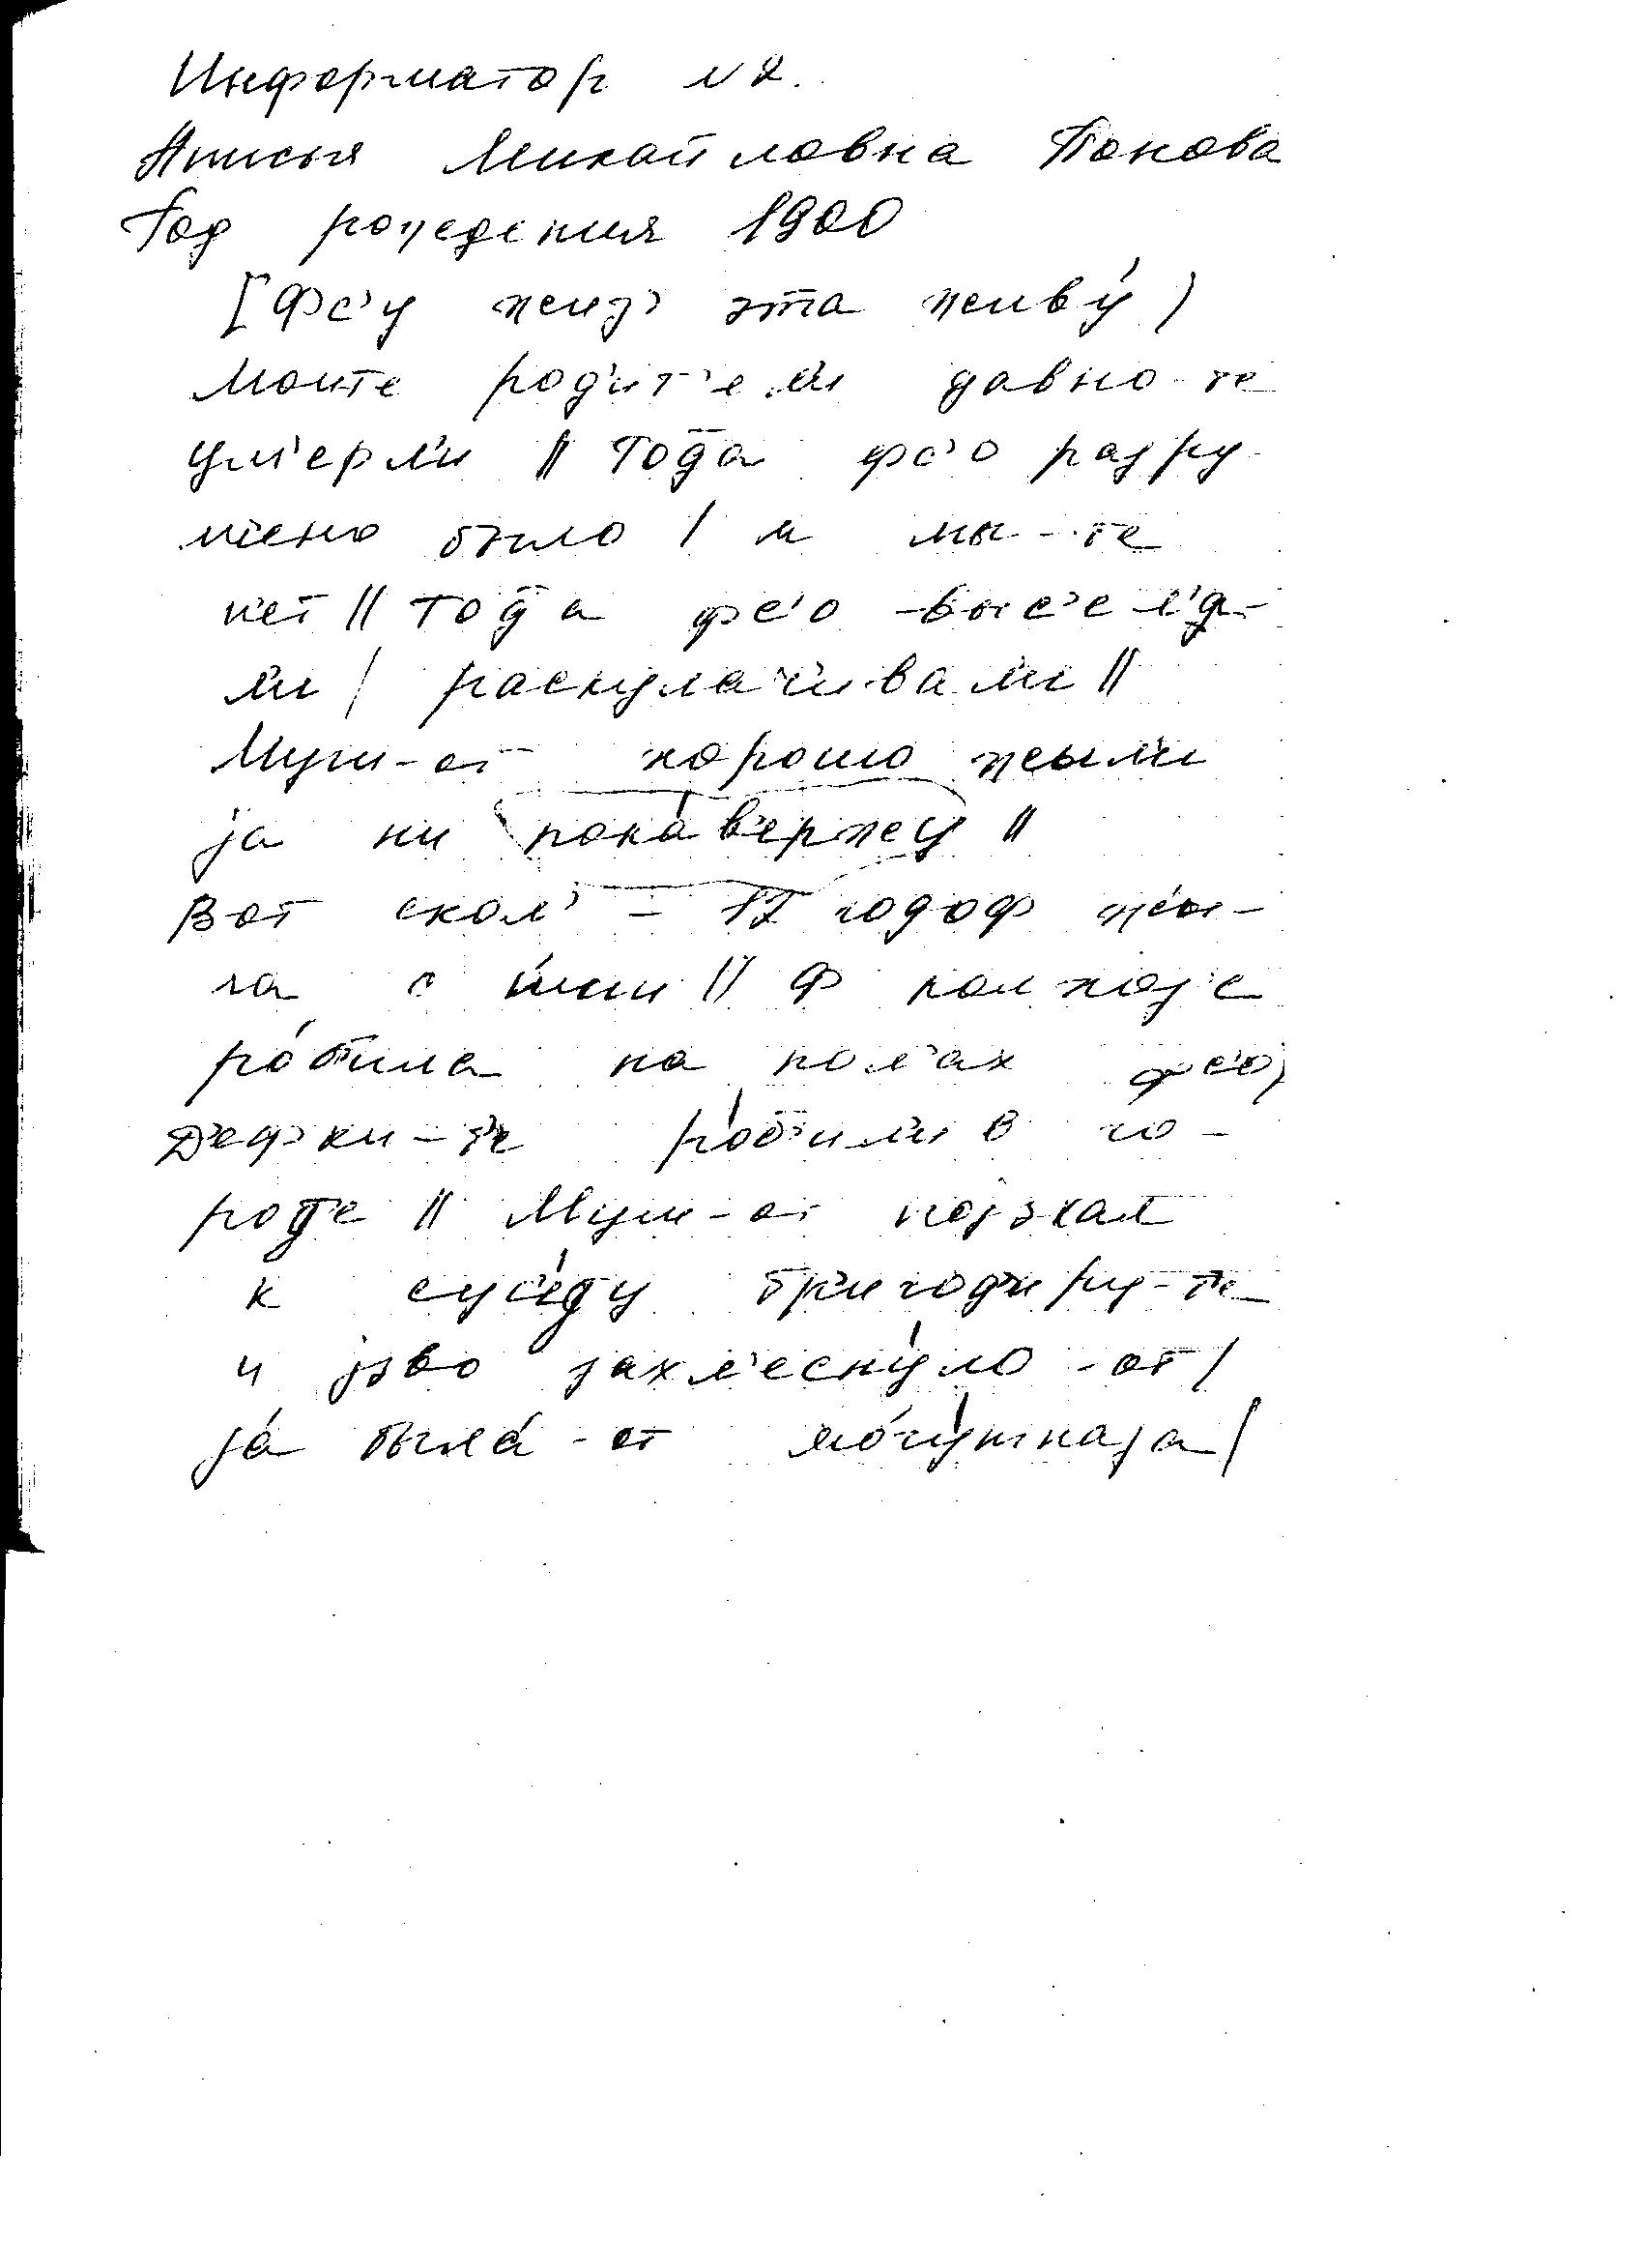 Информатор N2.
Анисья Михайловна Попова
Год рождения 1900
[Фс'у жиз' эта живу́ /
Моите род'ит'ел'и давно-те
ум'ерл'и || Тода фс'о разру-
шено было / и мы-те
нет || Тода фс'о выс'ел'а-
л'и / раскулач'ивал'и ||
Муш-от хорошо жыл'и
jа ни пока́в'ержу ||
Вот скол' - 17 годоф жы-
ла с и́им || Ф колхоз'е
ро́била на пол'ах фс'о,
Д'ефки-т'е ро́б'ил'и в го-
род'е || Муш-от појэхал
к сус'е́ду бр'игод'иру-т'е
и јэво захл'есну́ло-от /
jа́ была́-от могу́тнаја /